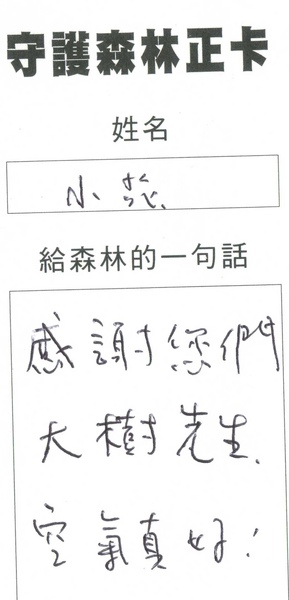 守護森林正卡
姓名
小
給森林的一句話
感謝您們
大樹先生.
空氣真好!